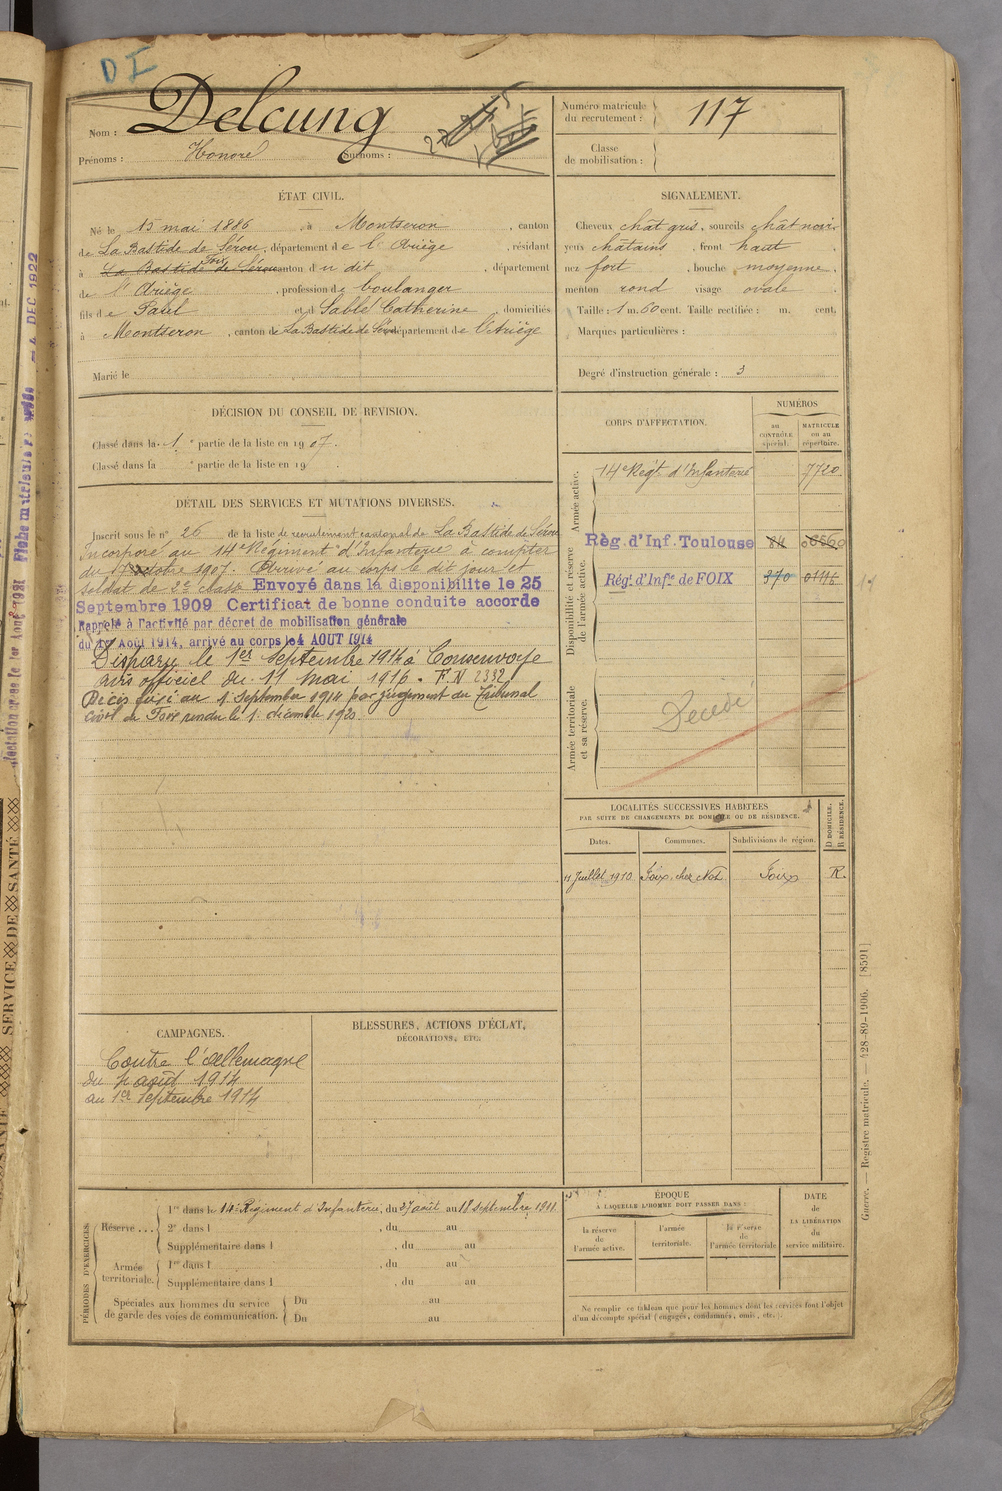 D I
Nom : Delcung
Prénoms : Honoré Surnoms :
Numéro matricule du recrutement : 117
Classe de mobilisation :
ÉTAT CIVIL.
Né le 15 mai 1886 à Montseron, canton
de La Bastide de Sérou, département de l'Ariège, résidant
à La Bastide de Sérou Foix canton du dit, département
de l'Ariège, profession de boulanger
fils de Paul et d Sablé Catherine, domiciliés
à Montseron, canton de La Bastide de Sérou département de l'Ariège
Marié le
SIGNALEMENT.
Cheveux chât gris, sourcils chât noirs
yeux châtains, front haut,
nez fort, bouche moyenne,
menton rond visage ovale.
Taille : 1 m. 60 cent. Taille rectifiée : m. cent.
Marques particulières :
Degré d'instruction générale : 3
DÉCISION DU CONSEIL DE REVISION.
Classé dans la 1 e partie de la liste en 1907.
Classé dans la e partie de la liste en 19 .
DÉTAIL DES SERVICES ET MUTATIONS DIVERSES.
Inscrit sous le n° 26 de la liste de recrutement cantonal de La Bastide de Sérou
Incorporé au 14e Régiment d'Infanterie à compter
du 17 octobre 1907. Arrivé au corps le dit jour et
soldat de 2e classe Envoyé dans la disponibilite le 25
Septembre 1909 Certificat de bonne conduite accorde
Rappelé à l'activité par décret de mobilisation générale
du 1er Août 1914, arrivé au corps le 4 AOUT 1914
Disparu le 1er Septembre 1914 à Consenvoye
avis officiel du 11 mai 1916. F.N 2332
Décès fixé au 1 Septembre 1914 par jugement du Tribunal
civil de Foix rendu le 1. décembre 1920.
CORPS D'AFFECTATION.
NUMÉROS
au CONTRÔLE spécial.
MATRICULE ou au répertoire.
Armée active.
14e Régt d'Infanterie 7720
Disponibilité et réserve de l'armée active.
Règ. d'Inf. Toulouse 84
Régt d'Infie de FOIX 370
Armée territoriale et sa réserve.
Décédé
LOCALITÉS SUCCESSIVES HABITÉES
PAR SUITE DE CHANGEMENTS DE DOMICILE OU DE RÉSIDENCE.
Dates. Communes. Subdivisions de région. D. DOMICILE. R. RÉSIDENCE.
11 Juillet 1910 Foix, chez Foix R.
CAMPAGNES.
Contre l'Allemagne
du 4 août 1914
au 1er Septembre 1914
BLESSURES, ACTIONS D'ÉCLAT,
DÉCORATIONS, ETC.
PÉRIODES D'EXERCICES.
Réserve ... 1re dans le 14e Régiment d'Infanterie, du 27 août au 18 septembre 1911
2e dans l , du au
Supplémentaire dans l , du au
Armée territoriale. 1re dans l , du au
Supplémentaire dans l , du au
Spéciales aux hommes du service de garde des voies de communication. Du au
Du au
ÉPOQUE
À LAQUELLE L'HOMME DOIT PASSER DANS :
la réserve de l'armée active.
l'armée territoriale.
la réserve de l'armée territoriale
DATE DE LA LIBÉRATION du service militaire.
Ne remplir ce tableau que pour les hommes dont les services font l'objet
d'un décompte spécial (engagés, condamnés, omis, etc.).
Guerre. — Registre matricule. — 128-89-1906. [8591]
SERVICE DE SANTÉ
4 DEC 1922